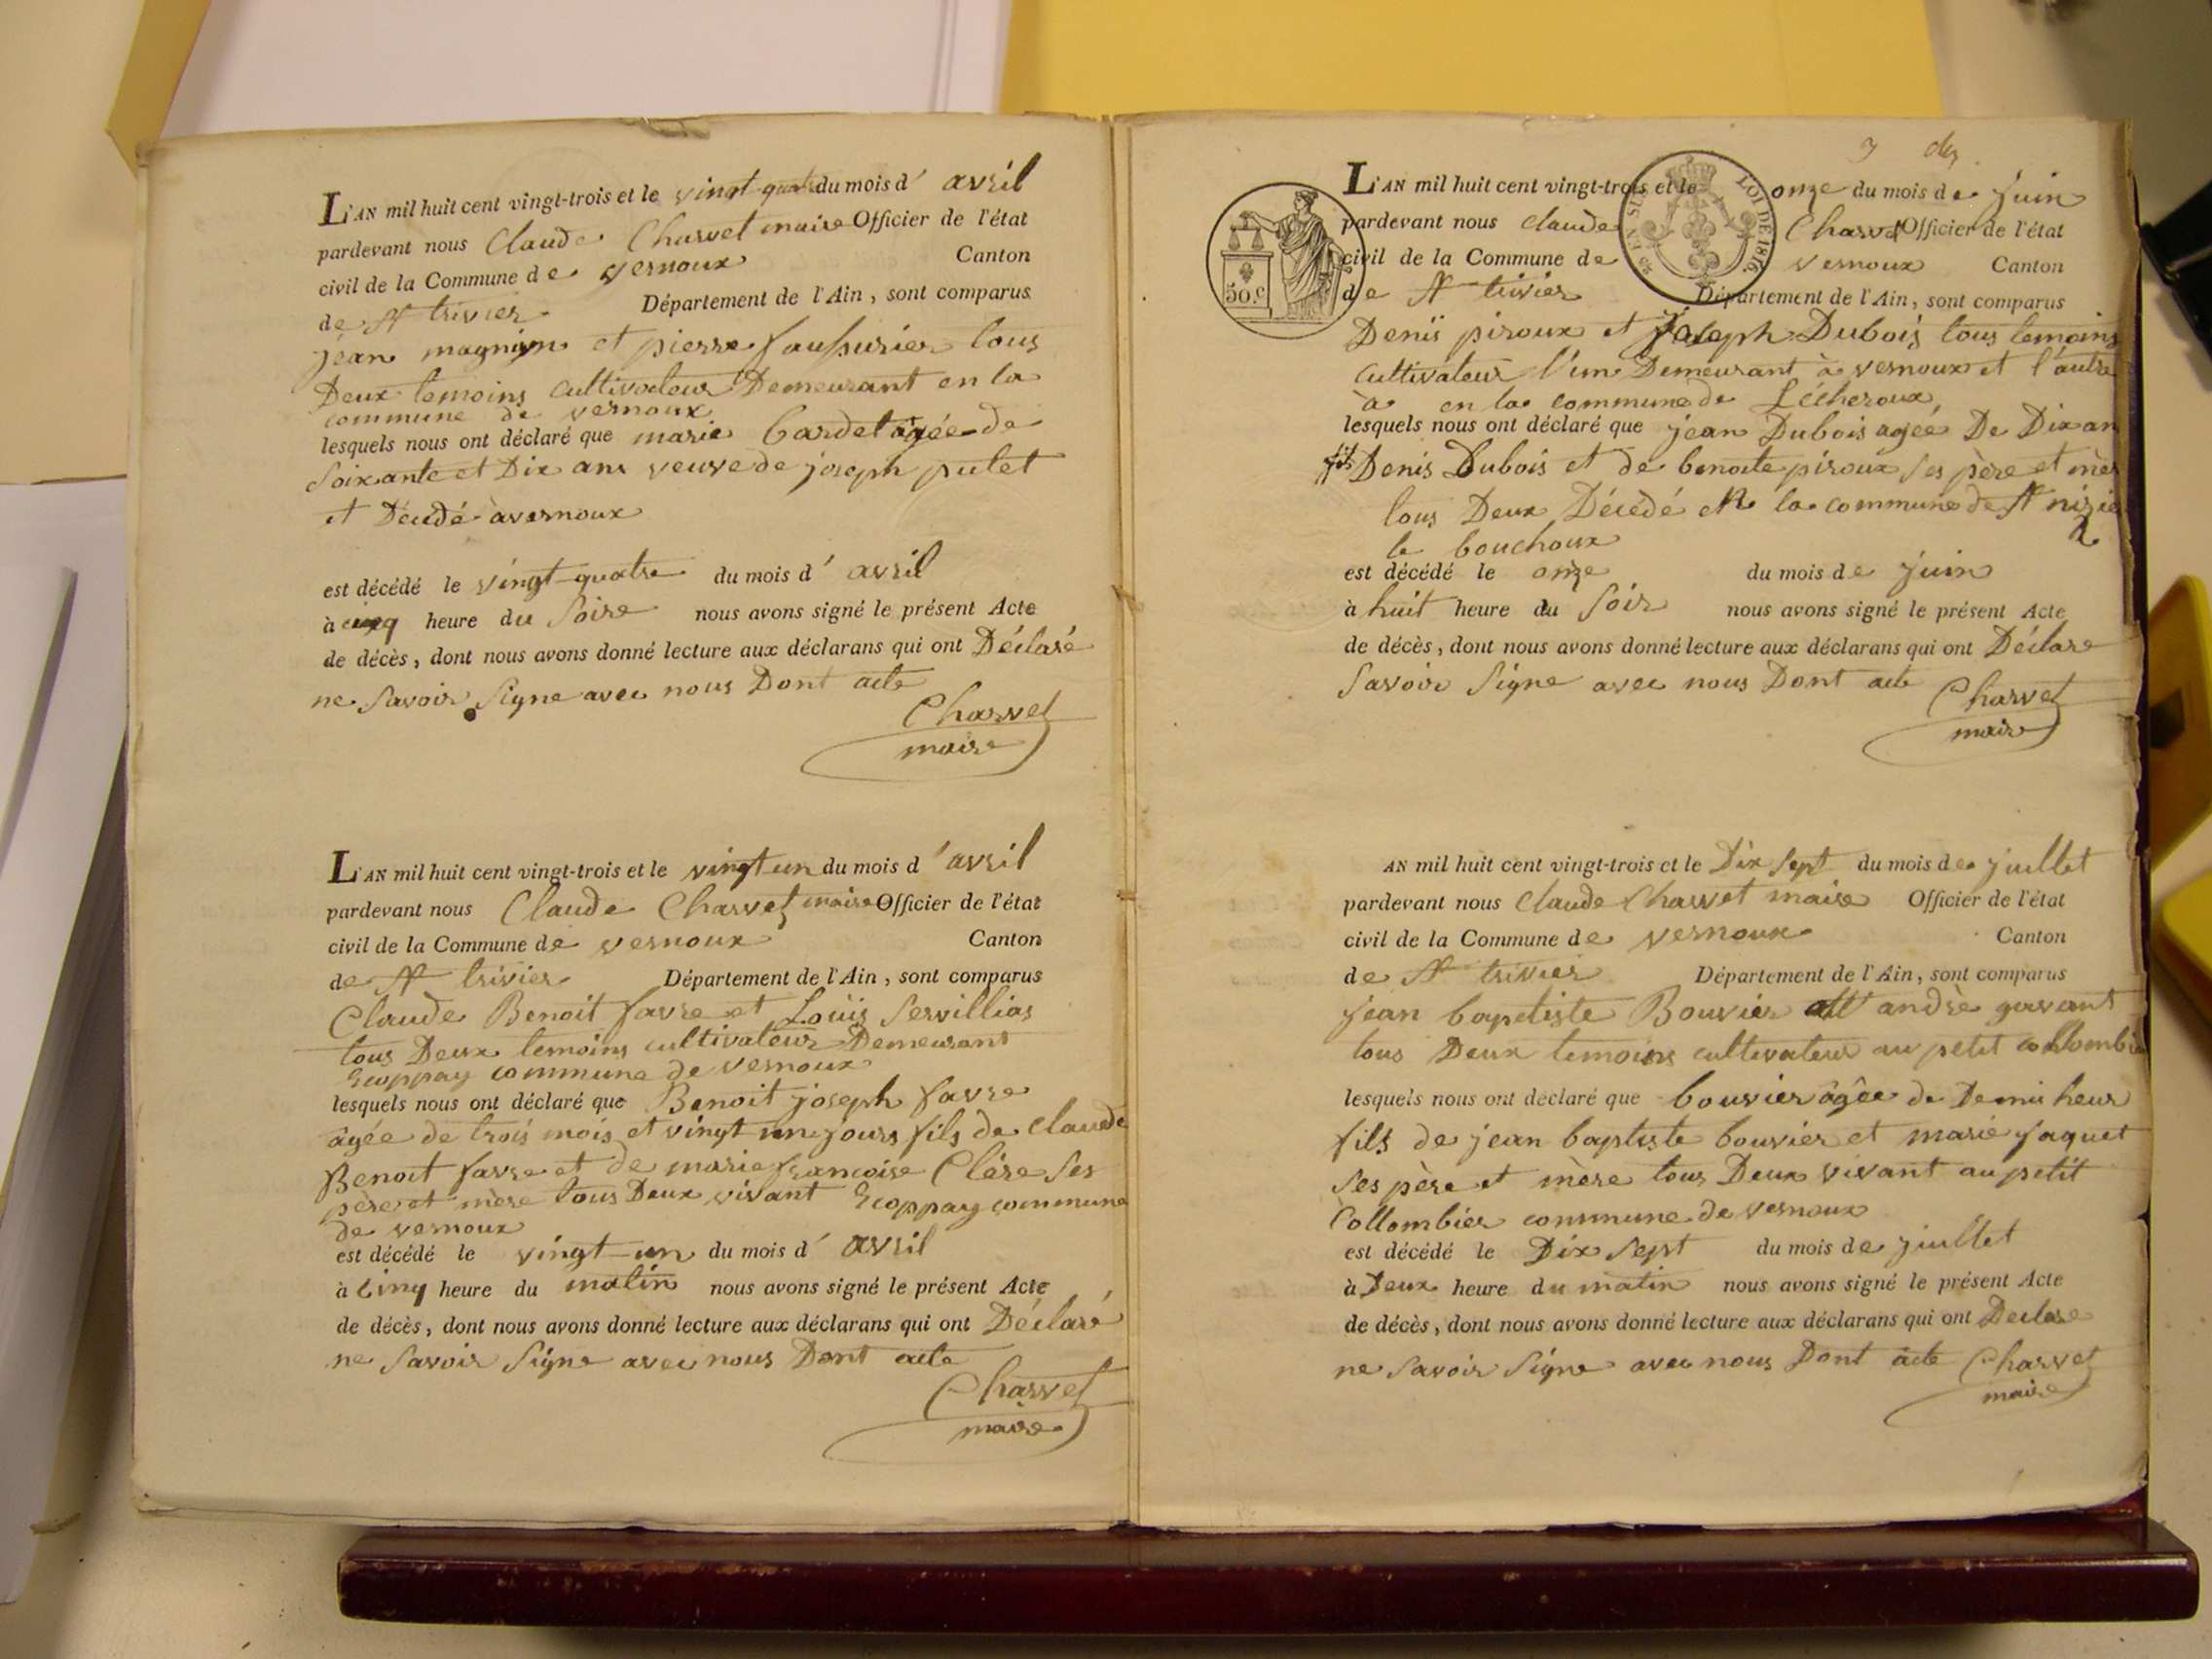 L'AN mil huit cent vingt-trois et le vingt quatre du mois d' avril
pardevant nous Claude Charvet maire Officier de l'état
civil de la Commune de vernoux Canton
de St trivier Département de l'Ain, sont comparus
jean magnin et pierre faussurier tous
Deux temoins cultivateur Demeurant en la
commune de vernoux
lesquels nous ont déclaré que marie Cardet agée de
Soixante et Dix ans veuve de joseph putet
et Décidé à vernoux
est décédé le vingt quatre du mois d' avril
à cinq heure du Soire nous avons signé le présent Acte
de décès, dont nous avons donné lecture aux déclarans qui ont Déclaré
ne Savoir Signe avec nous Dont acte
Charvet
maire
L'AN mil huit cent vingt-trois et le vingt un du mois d' avril
pardevant nous Claude Charvet maire Officier de l'état
civil de la Commune de vernoux Canton
de St trivier Département de l'Ain, sont comparus
Claude Benoit favre et Louis Servillias
tous Deux temoins cultivateur Demeurant
Ecoppay commune de vernoux
lesquels nous ont déclaré que Benoit joseph favre
âgée de trois mois et vingt un jours fils de Claude
Benoit favre et de marie françoise Clere Ses
père et mère tous Deux vivant Ecoppay commune
de vernoux
est décédé le vingt un du mois d' avril
à Cinq heure du matin nous avons signé le présent Acte
de décès, dont nous avons donné lecture aux déclarans qui ont Déclaré
ne Savoir Signe avec nous Dont acte
Charvet
maire
3
L'AN mil huit cent vingt-trois et le onze du mois de juin
pardevant nous Claude Charvet Officier de l'état
civil de la Commune de vernoux Canton
de St trivier Département de l'Ain, sont comparus
LOI DE 1816.
50.C
Denis piroux et Joseph Dubois tous temoins
cultivateur l'un Demeurant à vernoux et l'autre
à en la commune de Lécheroux
lesquels nous ont déclaré que jean Dubois agée De Dix an
fils Denis Dubois et de benoite piroux Ses père et mèr
tous Deux Décédé en la commune de St nizie
le bouchoux
est décédé le onze du mois de juin
à huit heure du Soir nous avons signé le présent Acte
de décès, dont nous avons donné lecture aux déclarans qui ont Déclare
Savoir Signe avec nous Dont acte
Charvet
maire
AN mil huit cent vingt-trois et le Dix Sept du mois de juillet
pardevant nous Claude Charvet maire Officier de l'état
civil de la Commune de vernoux Canton
de St trivier Département de l'Ain, sont comparus
jean baptiste Bouvier et andré gavant
tous Deux temoins cultivateur au petit collombie
lesquels nous ont déclaré que bouvier âgée de Demi heur
fils de jean baptiste bouvier et marie jaquet
Ses père et mère tous Deux vivant au petit
Collombier commune de vernoux
est décédé le Dix Sept du mois de juillet
à Deux heure du matin nous avons signé le présent Acte
de décès, dont nous avons donné lecture aux déclarans qui ont Declare
ne Savoir Signe avec nous Dont acte Charvet
maire